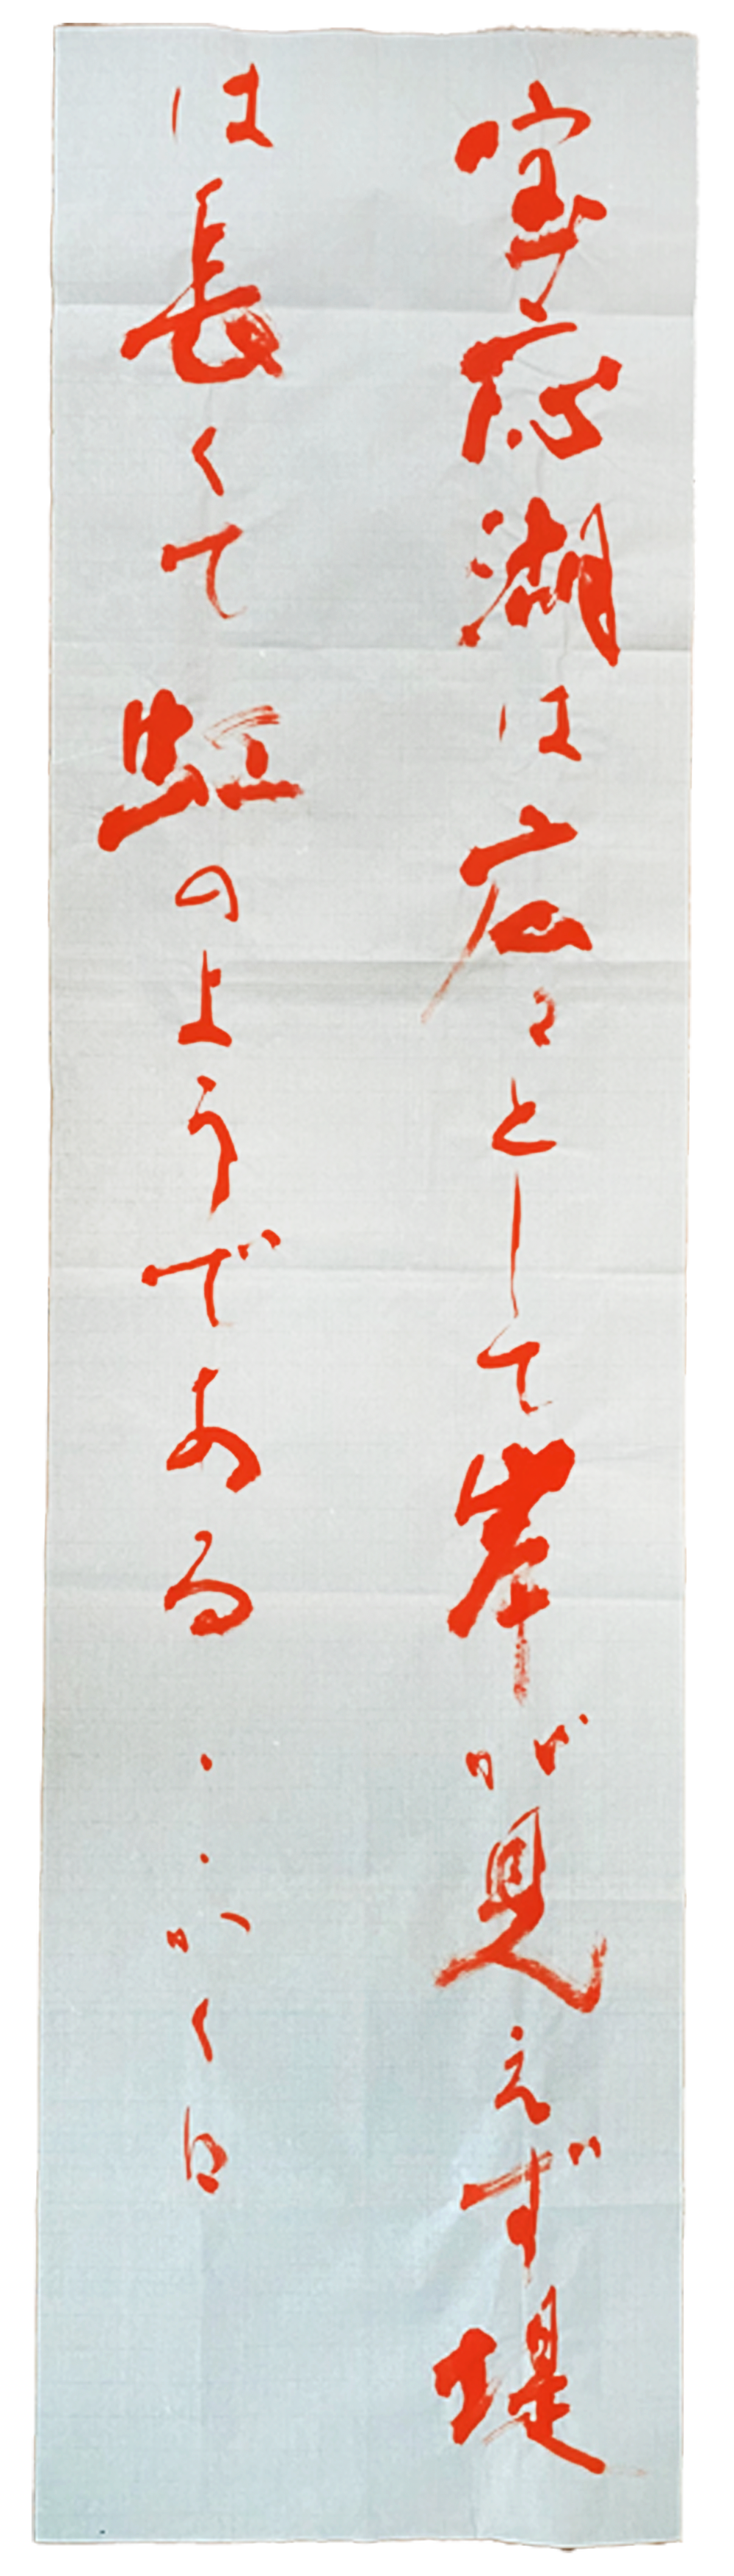 宝応湖は広々として岸が見えず堤
は長くて虹のようである